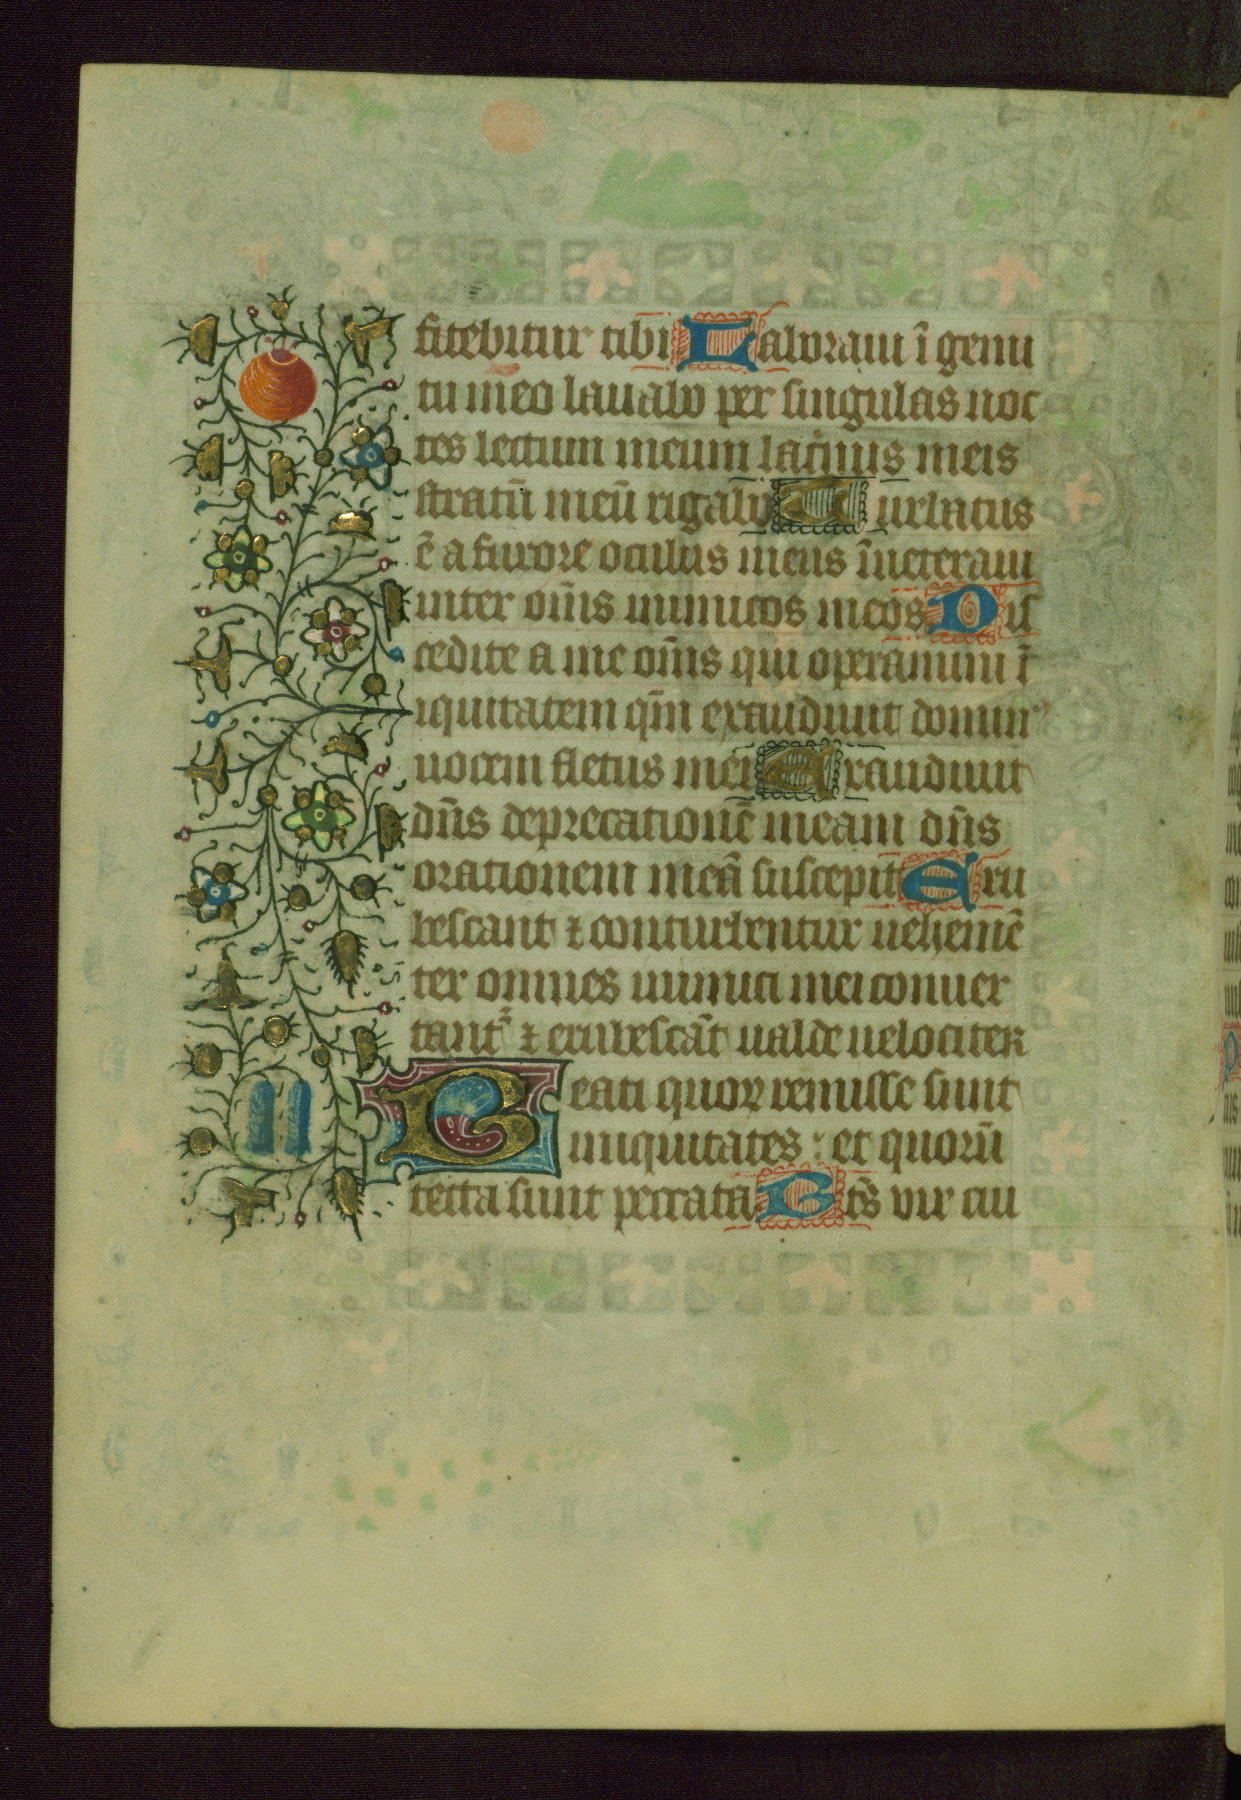 fitebitur tibi Laboraui ī gemi
tu meo lauabo per singulas noc
tes lectum meum lacrimis meis
stratū meū rigabo Turbatus
ē a furore oculus meus īueteraui
inter om̄s inimicos meos Dis
cedite a me om̄s qui operamini ī
iquitatem qm̄ exaudiuit domin᷒
uocem fletus mei Exaudiuit
dn̄s deprecationē meam dn̄s
orationem meā suscepit Eru
bescant ⁊ conturbentur uehemē
ter omnes inimici mei conuer
tant᷑ ⁊ erubescāt ualde uelociter
Beati quoꝝ remisse sunt
iniquitates : et quorū
tecta sunt peccata Bt̄s vir cui